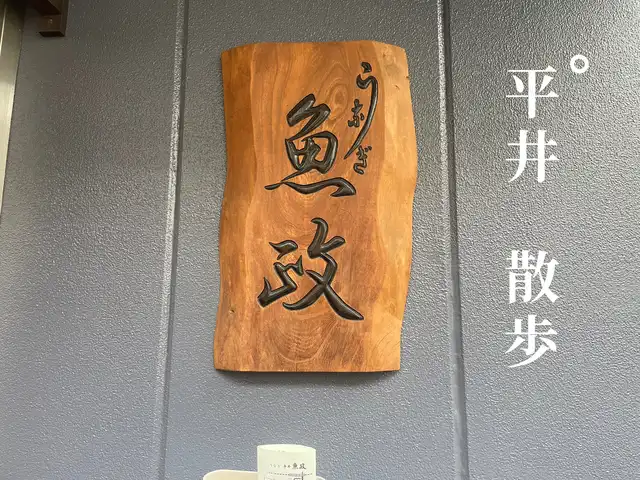 平井
散歩
うなぎ
魚政
魚政